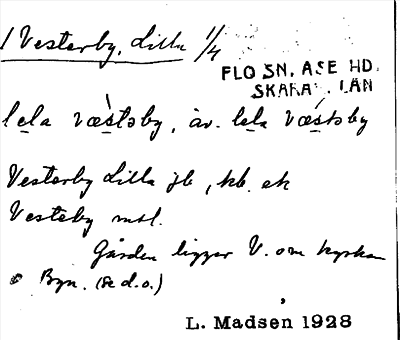 1 Vesterby, Lilla 1/4
FLO SN. ÅSE HD.
SKARAB. LÄN
lela væstoby, äv. lela væstoby
Vesterby Lilla jb, kb. ek
Vesteby mtl.
Gården ligger V. om kyrkan
o Byn. (se d.o.)
L. Madsen 1928